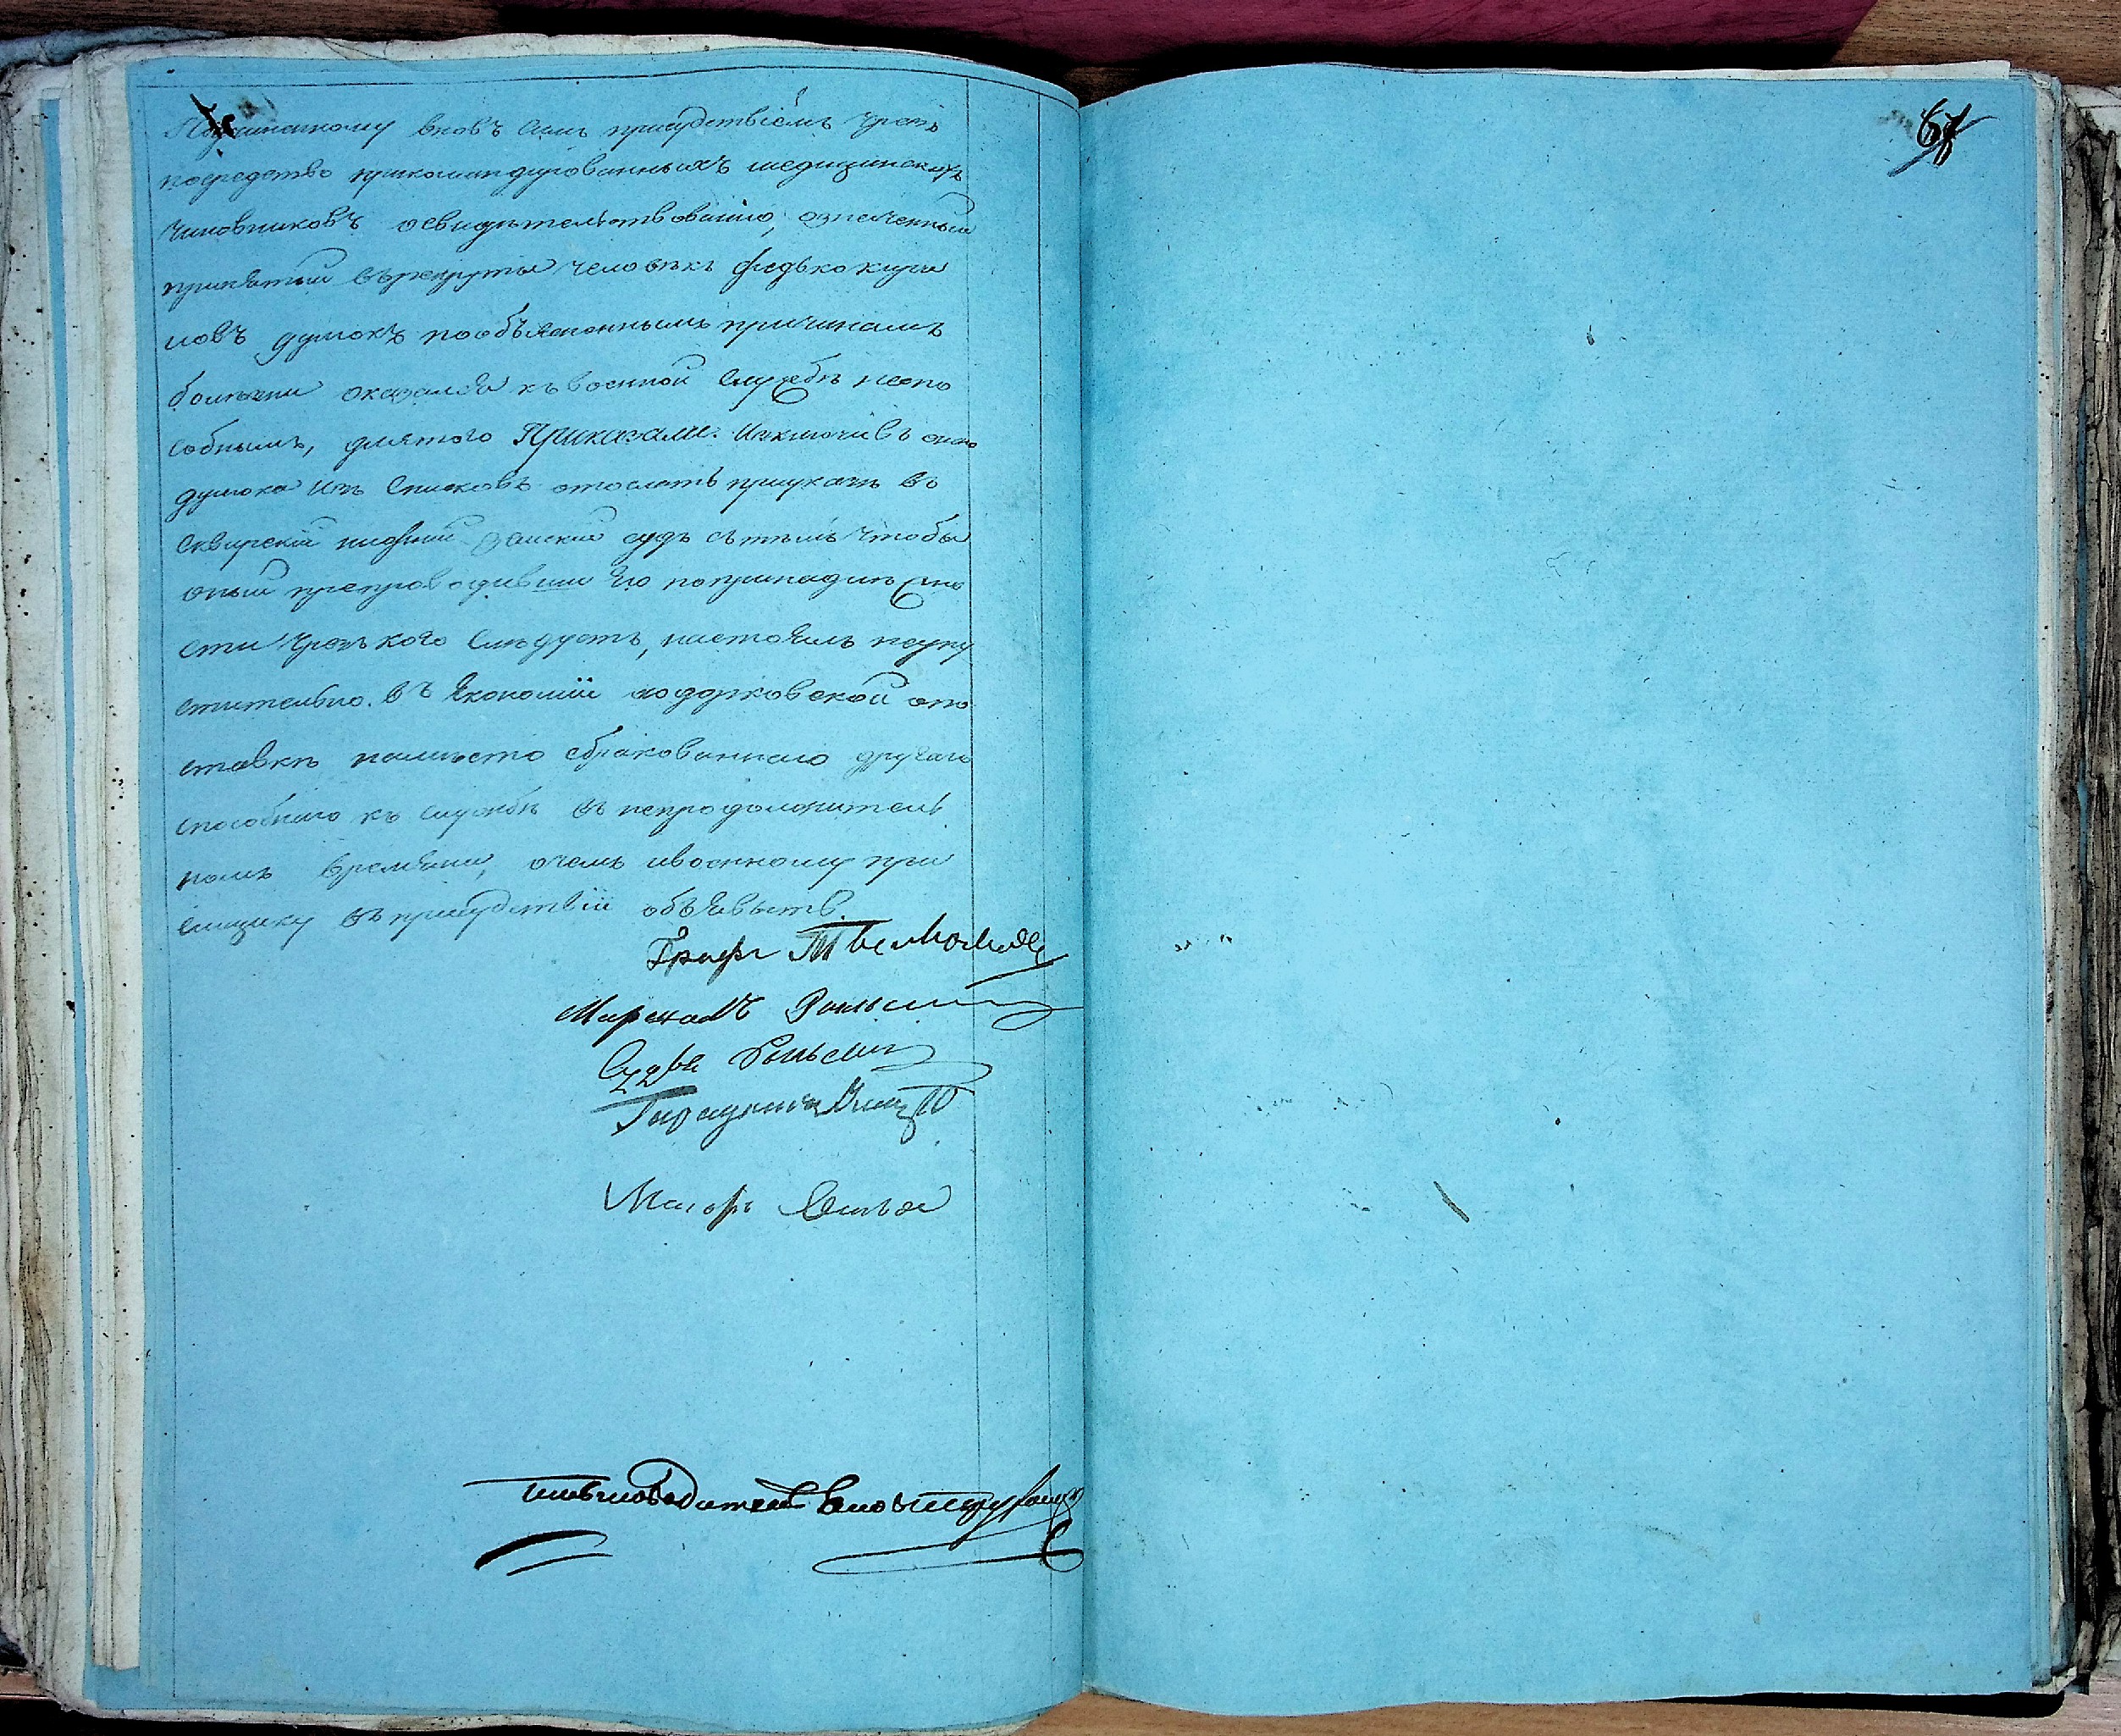 вновъ симъ присудствіемъ чрезъ
посредство прикомандированныхъ медицинскихъ
чиновниковъ освидѣтельствованію, означенный
принятый врекруты человѣкъ федько
новъ думокъ пообъясненнымъ причинамъ
болѣзни оказался къ военной службѣ неспо
собнымъ, длятого Приказали. Изключивъ оного
думока изъ списковъ отослать приуказѣ во
сквирскій нижній земскій судъ стѣмъ чтобы
оный препроводивши Его попринадлежно
сти чрезъ кого слѣдуетъ, настоялъ неупу
стительно. въ Економіи ходорковской опо
ставкѣ намѣсто збракованного другаго
способного къ службѣ въ непродолжитель
номъ времяни, очемъ ивоенному прі
емщику въ присудствіи объявыть.
Графъ
Маршалъ
Судья
Маіоръ
67